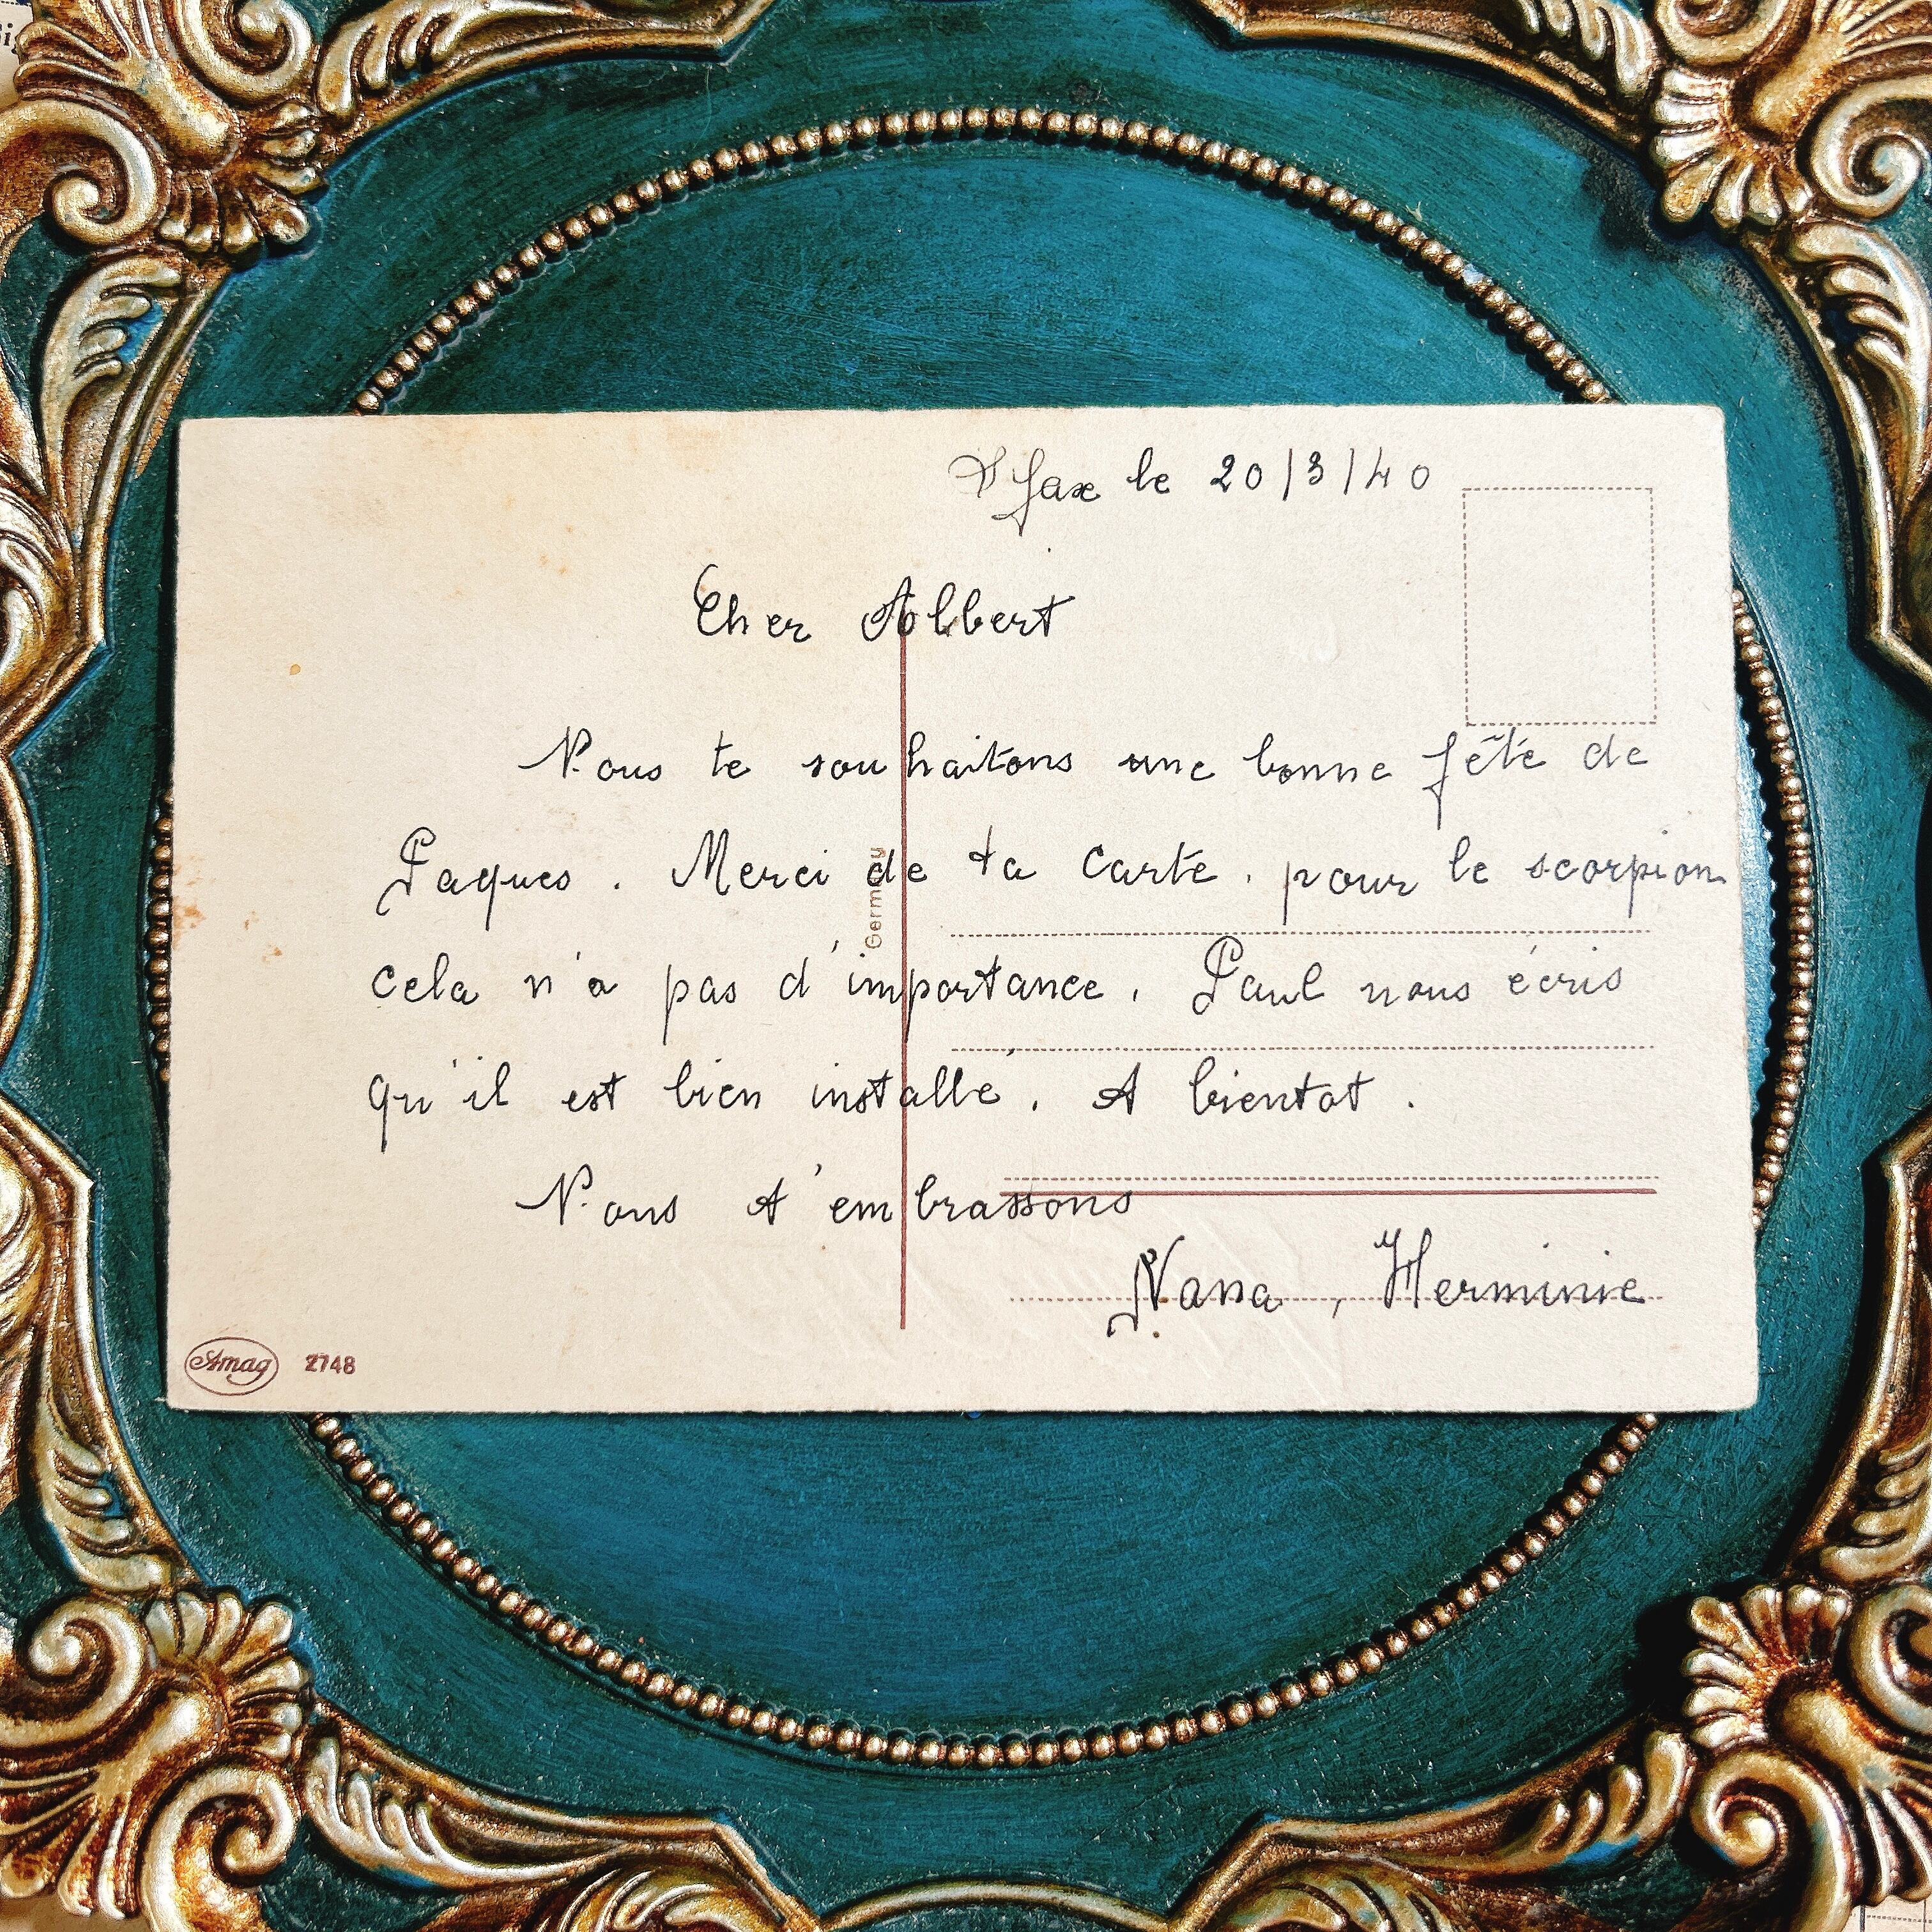 Sfax le 20/3/40
Cher Albert
Nous te souhaitons une bonne fête de
Paques. Merci de ta carte. pour le scorpion
cela n'a pas d'importance. Paul nous écris
qu'il est bien installé. A bientot.
Nous t'embrassons
Nana, Herminie
Germany
Amag 2748